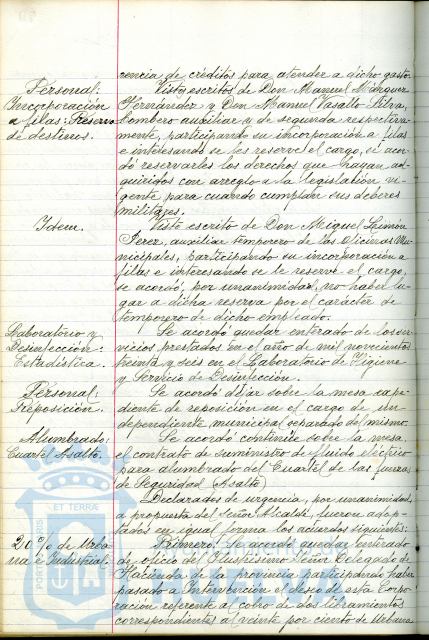 rencia de créditos para atender a dicho gasto.
Personal:
Incorporación
a filas: Reserva
de destinos.
Vistos escritos de Don Manuel Mínguez
Hernández y Don Manuel Vasallo Silva,
bombero auxiliar y de segunda respectiva-
mente, participando su incorporación a filas
e interesando se les reserve el cargo, se acor-
dó reservarles los derechos que hayan ad-
quiridos con arreglo a la legislación vi-
gente para cuando cumplan sus deberes
militares.
Idem.
Visto escrito de Don Miguel Limón
Perez, auxiliar temporero de las oficinas Mu-
nicipales, participando su incorporación a
filas e interesando se le reserve el cargo,
se acordó, por unanimidad, no haber lu-
gar a dicha reserva por el carácter de
temporero de dicho empleado.
Laboratorio y
Desinfección:
Estadística.
Se acordó quedar enterado de los ser-
vicios prestados en el año de mil novecientos
treinta y seis en el Laboratorio de Higiene
y Servicio de Desinfección.
Personal:
Reposición.
Se acordó dejar sobre la mesa expe-
diente de reposición en el cargo de un
dependiente municipal separado del mismo.
Alumbrado:
Cuartel Asalto.
Se acordó continúe sobre la mesa
el contrato de suministro de fluido eléctrico
para alumbrado del Cuartel de las fuerzas
de Seguridad (Asalto)
Declarados de urgencia, por unanimidad,
a propuesta del Señor Alcalde, fueron adop-
tados en igual forma los acuerdos siguientes:
20% de Urba-
na e Industrial.
Primero, Se acordó quedar enterado
de oficio del Ilustrísimo Señor Delegado de
Hacienda de la provincia participando haber
pasado a Intervención el deseo de esta Corpo-
ración referente al cobro de dos libramientos
correspondientes al veinte por ciento de Urbana
ET TERRÆ